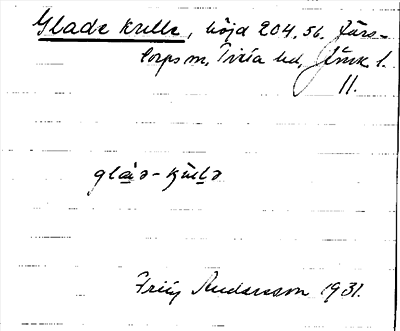 Glade kulle, höjd 204,56. Järs-
torps sn, Tveta hd, Jönk. l.
11.
glàə-kùlə
Fritz Andersson 1931.